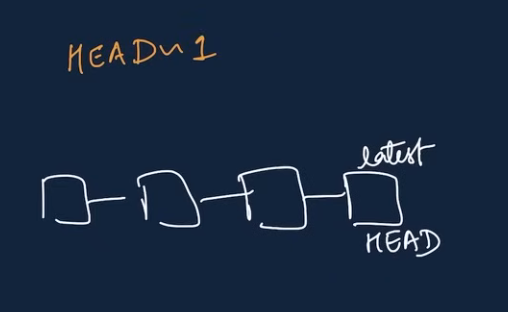 HEAD~1
latest
HEAD